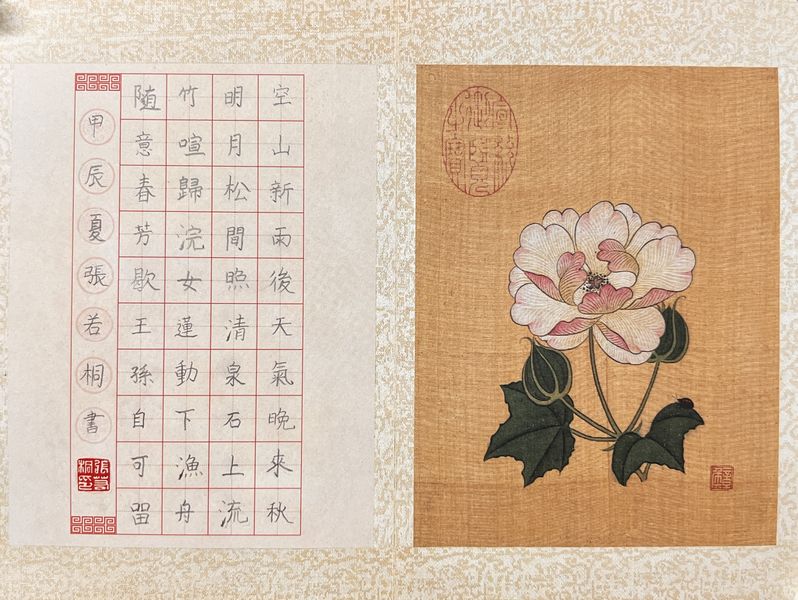 空山新雨後天氣晚來秋
明月松間照清泉石上流
竹喧歸浣女蓮動下漁舟
随意春芳歇王孫自可留
甲辰夏張若桐書
張若桐印